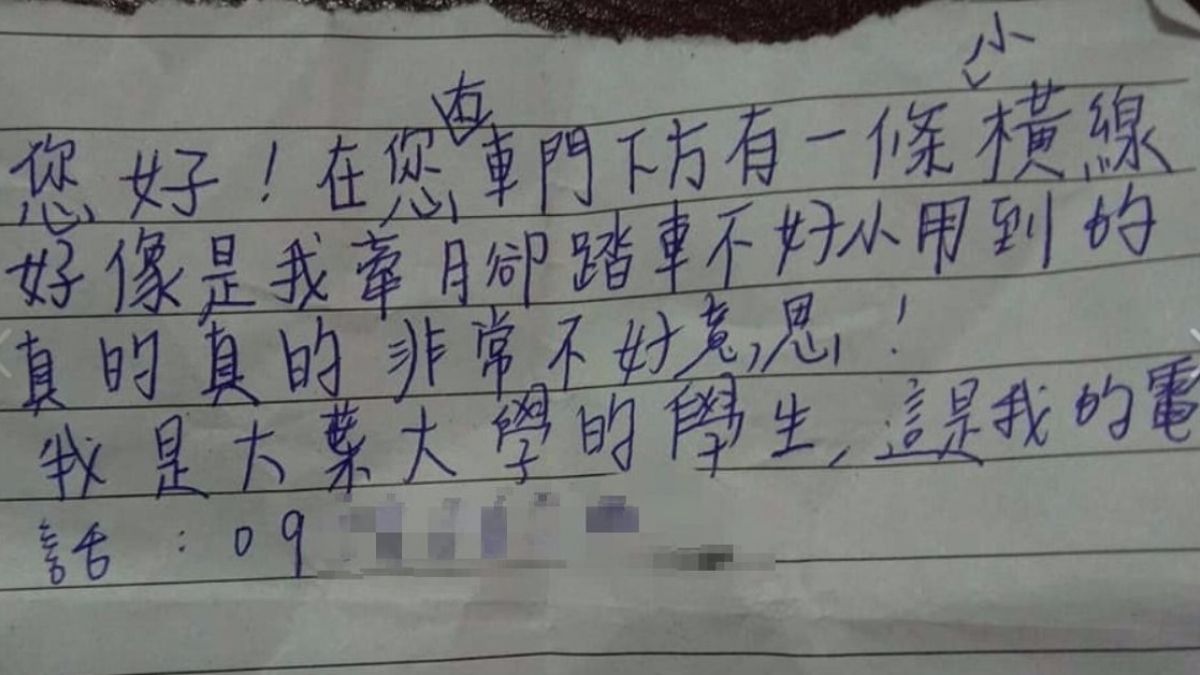 您好！在您右車門下方有一條小橫線
好像是我牽腳踏車不好小用到的
真的真的非常不好意思！
我是大葉大學的學生，這是我的電
話：09